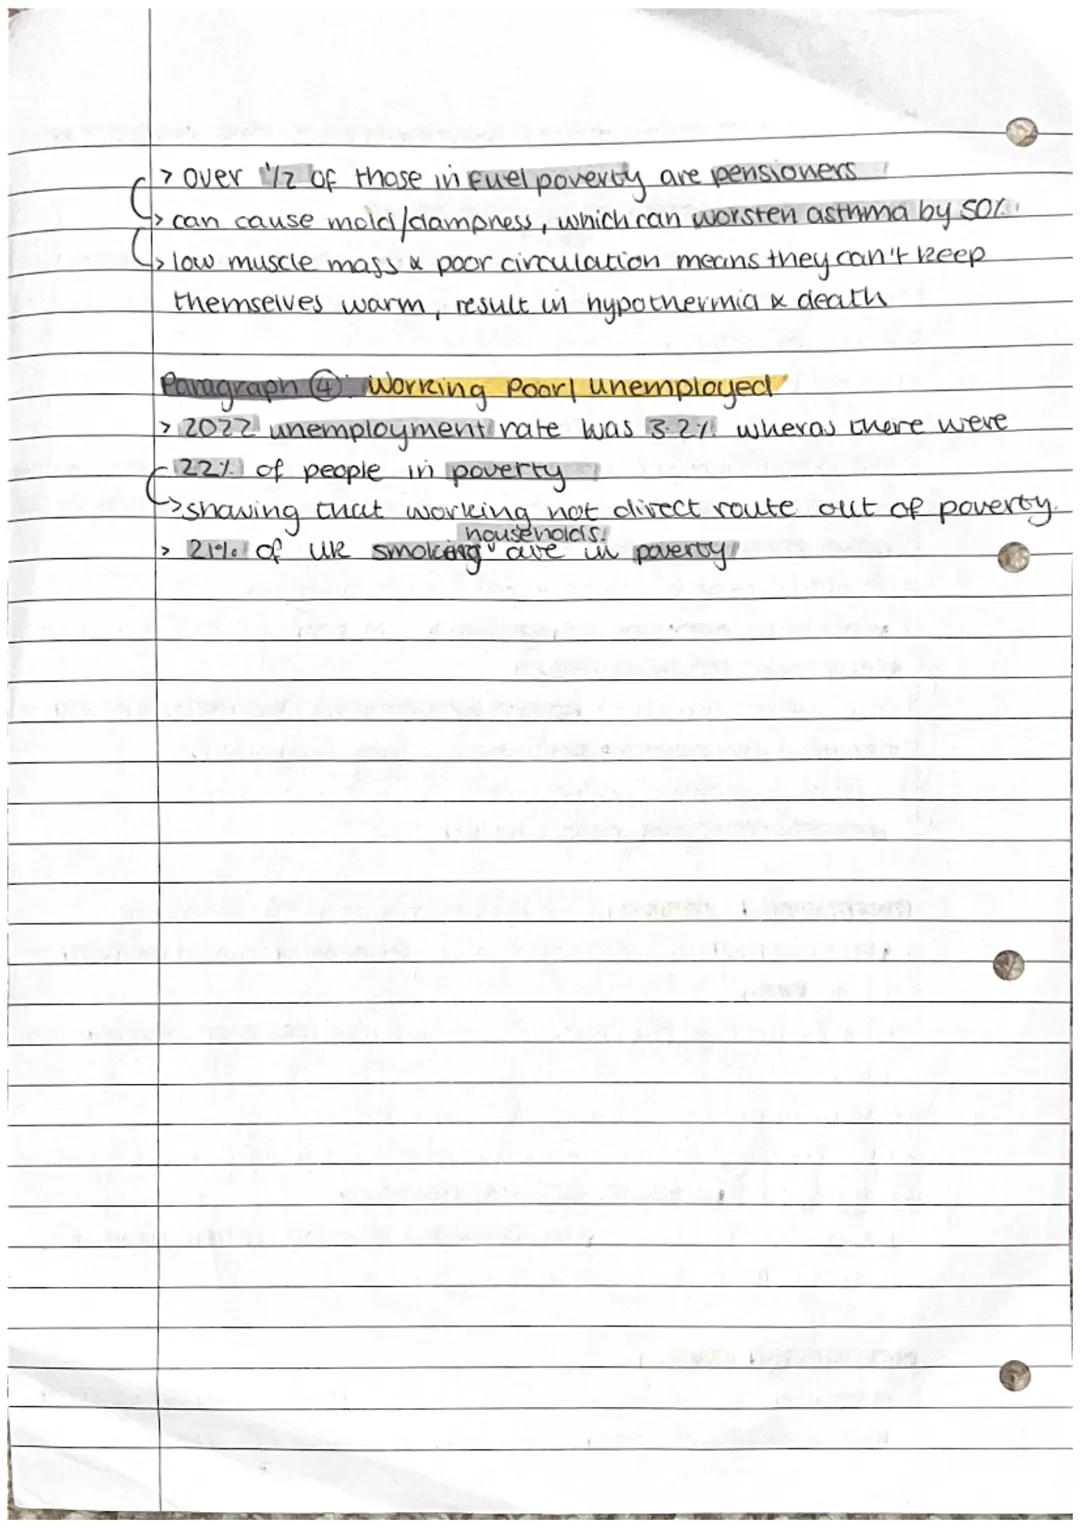 > over 1/2 of those in fuel poverty are pensioners
↳> can cause mold/dampness, which can worsten asthma by 50%.
↳> low muscle mass & poor circulation means they can't keep
themselves warm, result in hypothermia & death
Paragraph ④: Working Poor/ Unemployed
> 2022 unemployment rate was 3.2% wheras there were
22% of people in poverty
↳> showing that working not direct route out of poverty.
households
> 21% of UK smoking are in poverty